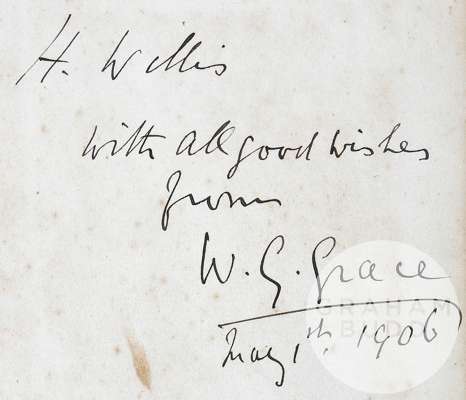 H. Willis
with all good wishes
from
W. G. Grace
GRAHAM
BUDD
May 1st. 1906